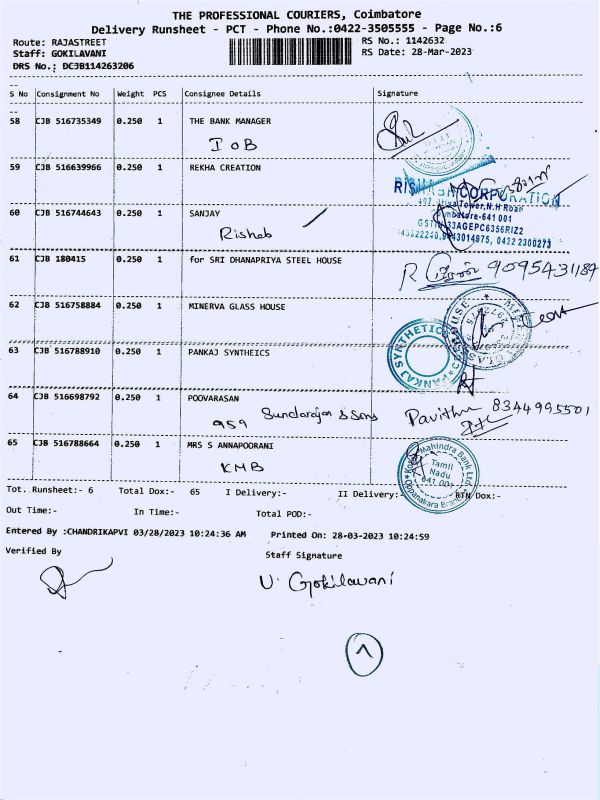 THE PROFESSIONAL COURIERS, Coimbatore
Delivery Runsheet - PCT - Phone No.:0422-3505555 - Page No.:6
Route: RAJASTREET RS No.: 1142632
Staff: GOKILAVANI RS Date: 28-Mar-2023
DRS No.: DCJB114263206
S No Consignment No Weight PCS Consignee Details Signature
58 CJB 516735349 0.250 1 THE BANK MANAGER
IOB
59 CJB 516639966 0.250 1 REKHA CREATION
CORPORATION
Tower, N.H Road
60 CJB 516744643 0.250 1 SANJAY
Coimbatore-641 001
Rishab
GSTIN 33AGEPC6356R1Z2
0422 2300273
61 CJB 180415 0.250 1 for SRI DHANAPRIYA STEEL HOUSE
R 9095431184
62 CJB 516758884 0.250 1 MINERVA GLASS HOUSE
63 CJB 516788910 0.250 1 PANKAJ SYNTHEICS
PANKAJ SYNTHETIC
64 CJB 516698792 0.250 1 POOVARASAN
959 Sundarajan & Sons Pavithra 8344995501
65 CJB 516788664 0.250 1 MRS S ANNAPOORANI
KMB
Mahindra Bank Ltd.
Tamil
Nadu
641 001
Oppanakara Branch
Tot. Runsheet:- 6 Total Dox:- 65 I Delivery:- II Delivery:- RTN Dox:-
Out Time:- In Time:- Total POD:-
Entered By :CHANDRIKAPVI 03/28/2023 10:24:36 AM Printed On: 28-03-2023 10:24:59
Verified By Staff Signature
V. Gokilavani
1